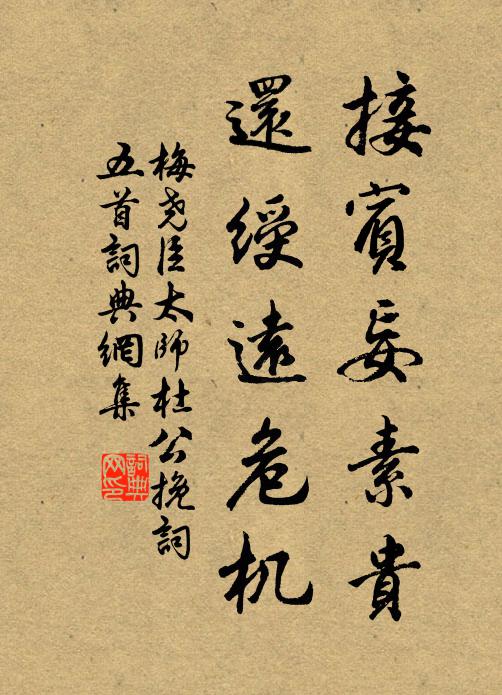 接賓妄素貴
還綬遠危机
梅尧臣太師杜公挽詞
五首詞典網集
詞典
网印